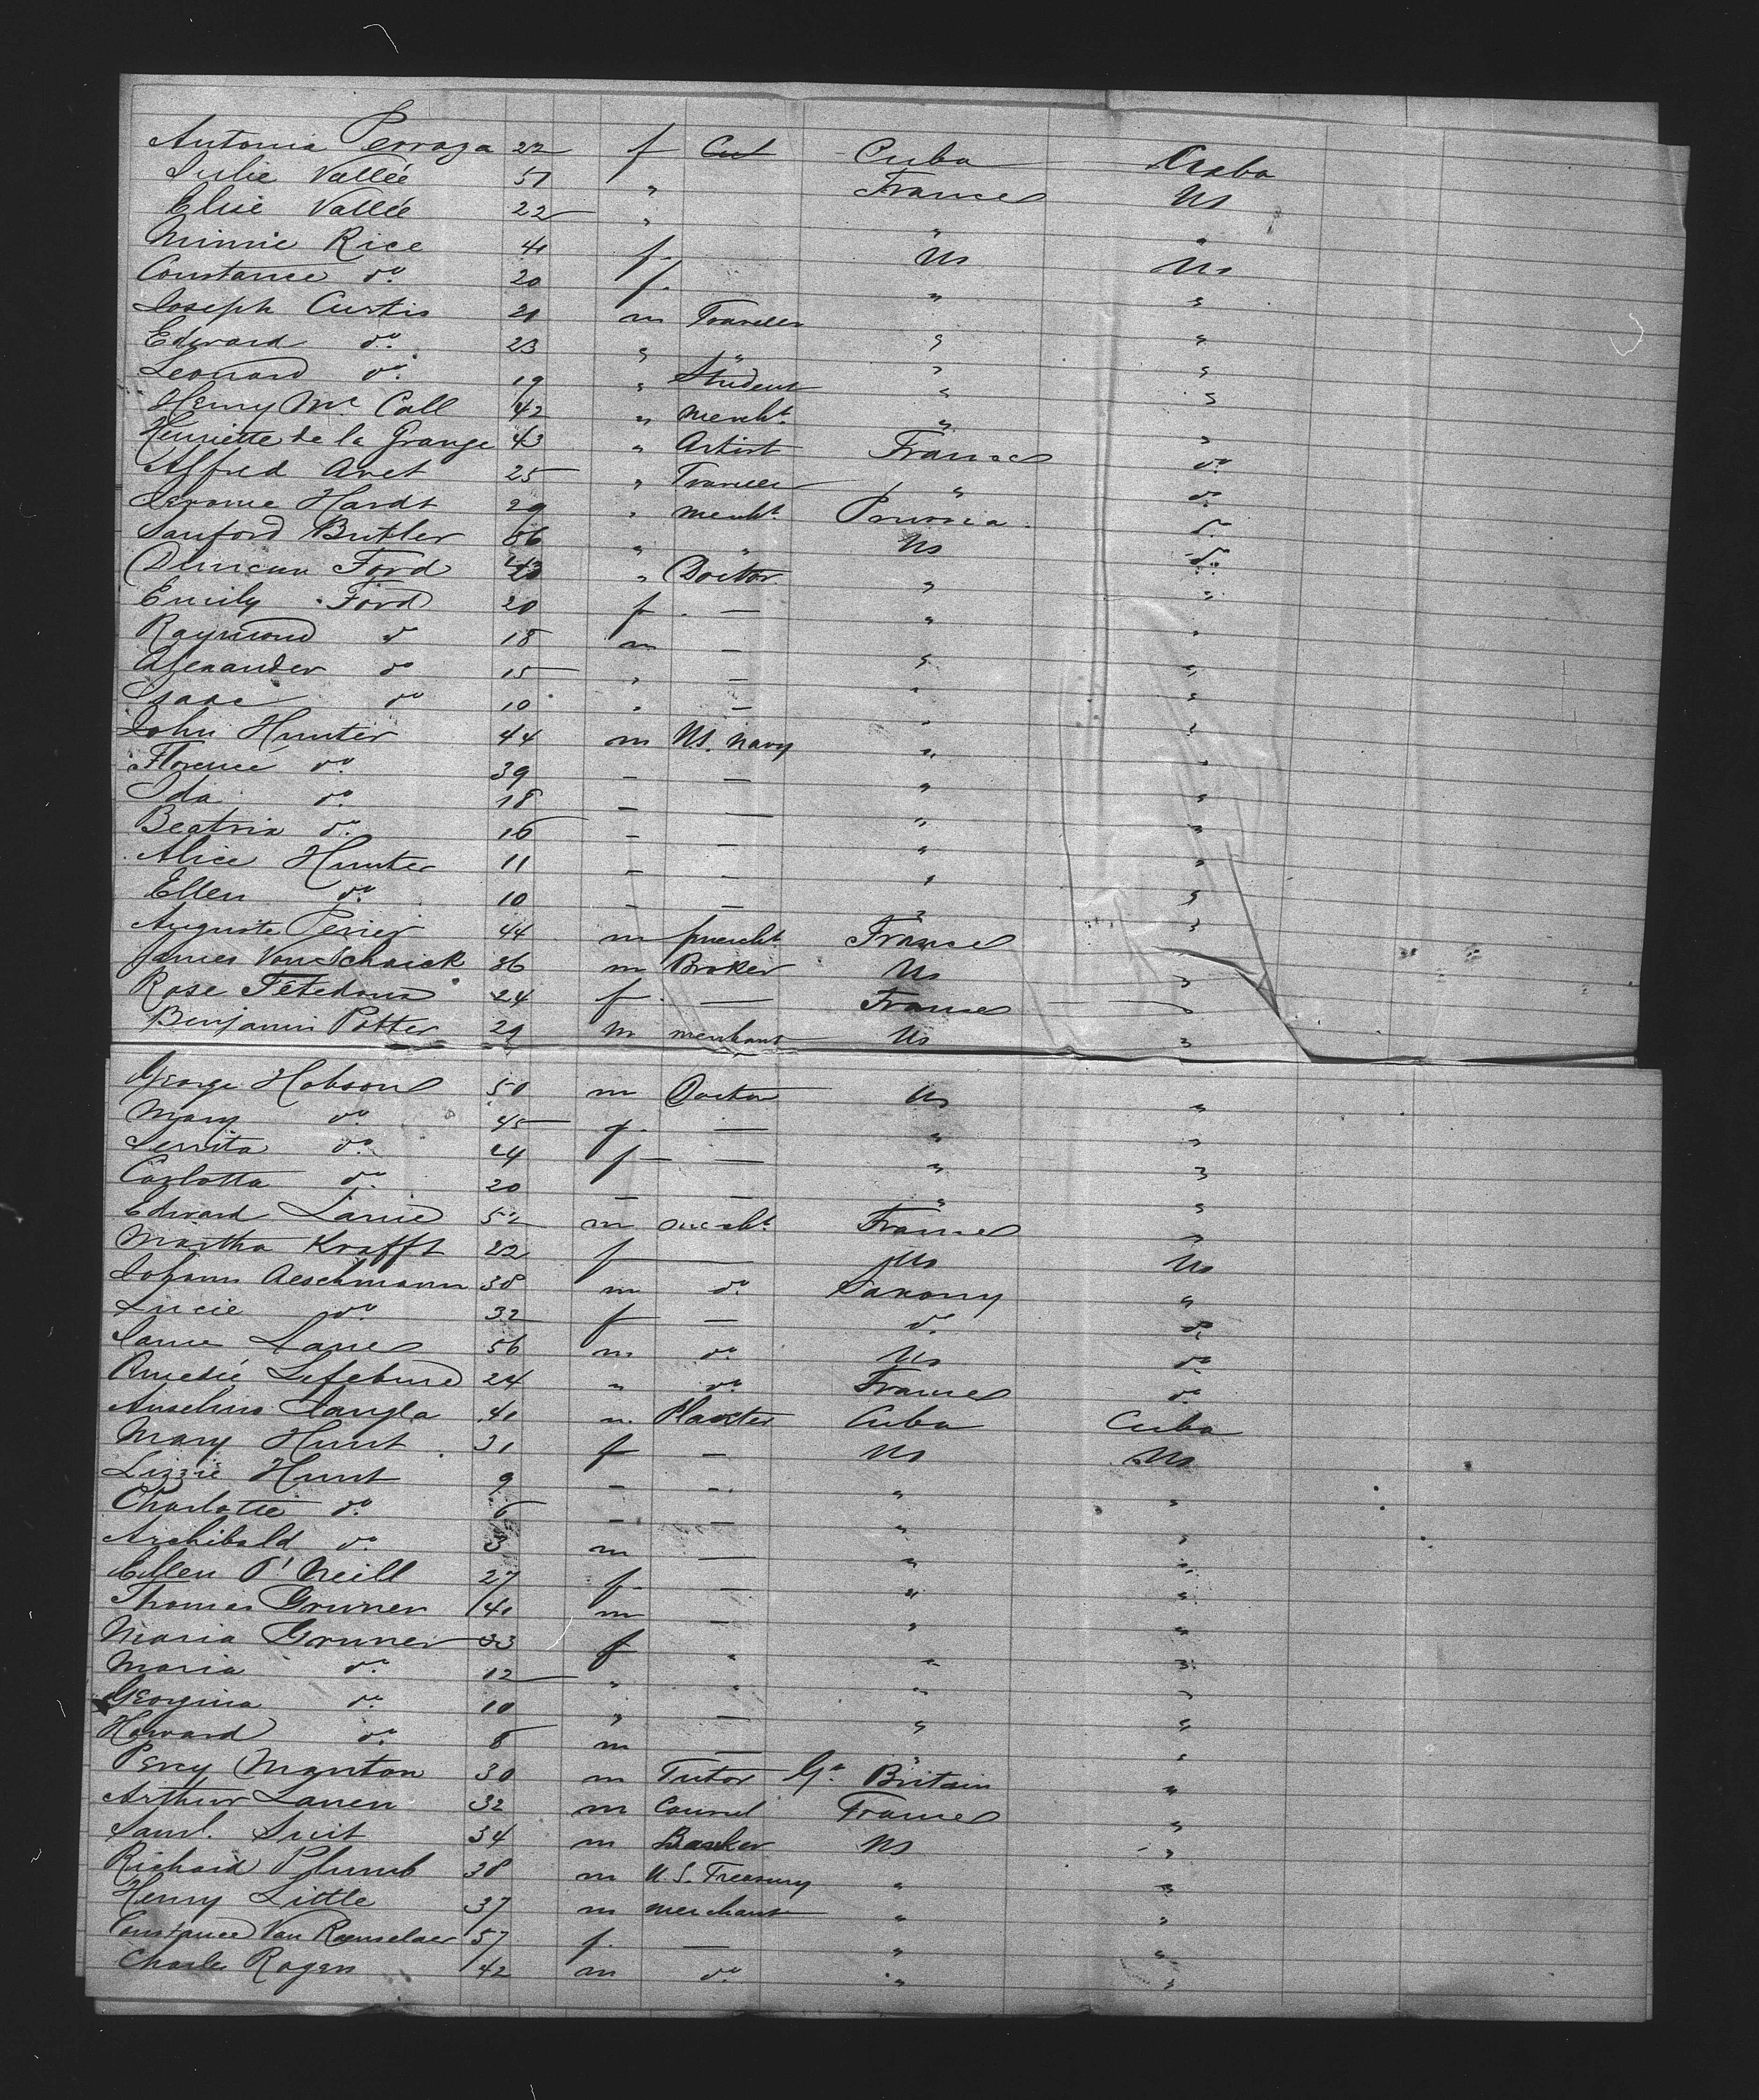 Antonia Perraza 22 f Cul Cuba Cuba
Julie Vallée 51 " France Us
Elise Vallée 22 " " "
Minnie Rice 41 f. Us Us
Constance do. 20 f. " "
Joseph Curtis 21 m Traveller " "
Edward do. 23 " " " "
Leonard do. 19 " Student " "
Henry Mc Call 42 " Mercht. " "
Henriette de la Grange 43 " Artist France do.
Alfred Avet 25 " Traveller " do.
Jerome Hardt 29 " mercht. Prussia do.
Sanford Butler 56 " " Us do.
Duncan Ford 43 " Doctor " "
Emily Ford 20 f. — " "
Raymond do 18 m — " "
Alexander do 15 " — " "
Isaac do 10 " — " "
John Hunter 44 m U.S. Navy " "
Florence do. 39 — — " "
Ida do. 18 — — " "
Beatrix do. 16 — — " "
Alice Hunter 11 — — " "
Ellen do. 10 — — " "
Auguste Perier 44 m mercht France "
James Van Schaick 36 m Broker Us "
Rose Tetedoux 24 f. — France "
Benjamin Potter 29 m merchant Us "
George Hobson 50 m Doctor Us "
Mary do. 45 f. — " "
do. 24 f — — " "
Carlotta do. 20 — — " "
Edward Lanie 52 m mercht. France "
Martha Krafft 22 f — Us Us
Johann Aeschmann 38 m do. Saxony "
Lucie do. 32 f — do. do.
Lane 56 m do. Us do.
Amedie Lefebure 24 " do. France do.
Anselmo 40 " Planter Cuba Cuba
Mary Hunt 31 f — Us Us
Lizzie Hunt 9 — — " "
Charlotte do. 6 — — " "
Archibald do. 3 m — " "
Ellen O'Neill 27 f. — " "
Thomas Gruner 41 m — " "
Maria Gruner 33 f " " "
Maria do. 12 " " " "
Georgina do. 10 " — " "
Howard do. 8 m — " "
Percy Manton 30 m Tutor Gt. Britain "
Arthur Lanen 32 m Consul France "
Saml. Suit 34 m Banker Us "
Richard Plumb 38 m U.S. Treasury " "
Henry Little 37 m merchant " "
Constance Van Renselaer 57 f. — " "
Charles Rogers 42 m do. " "